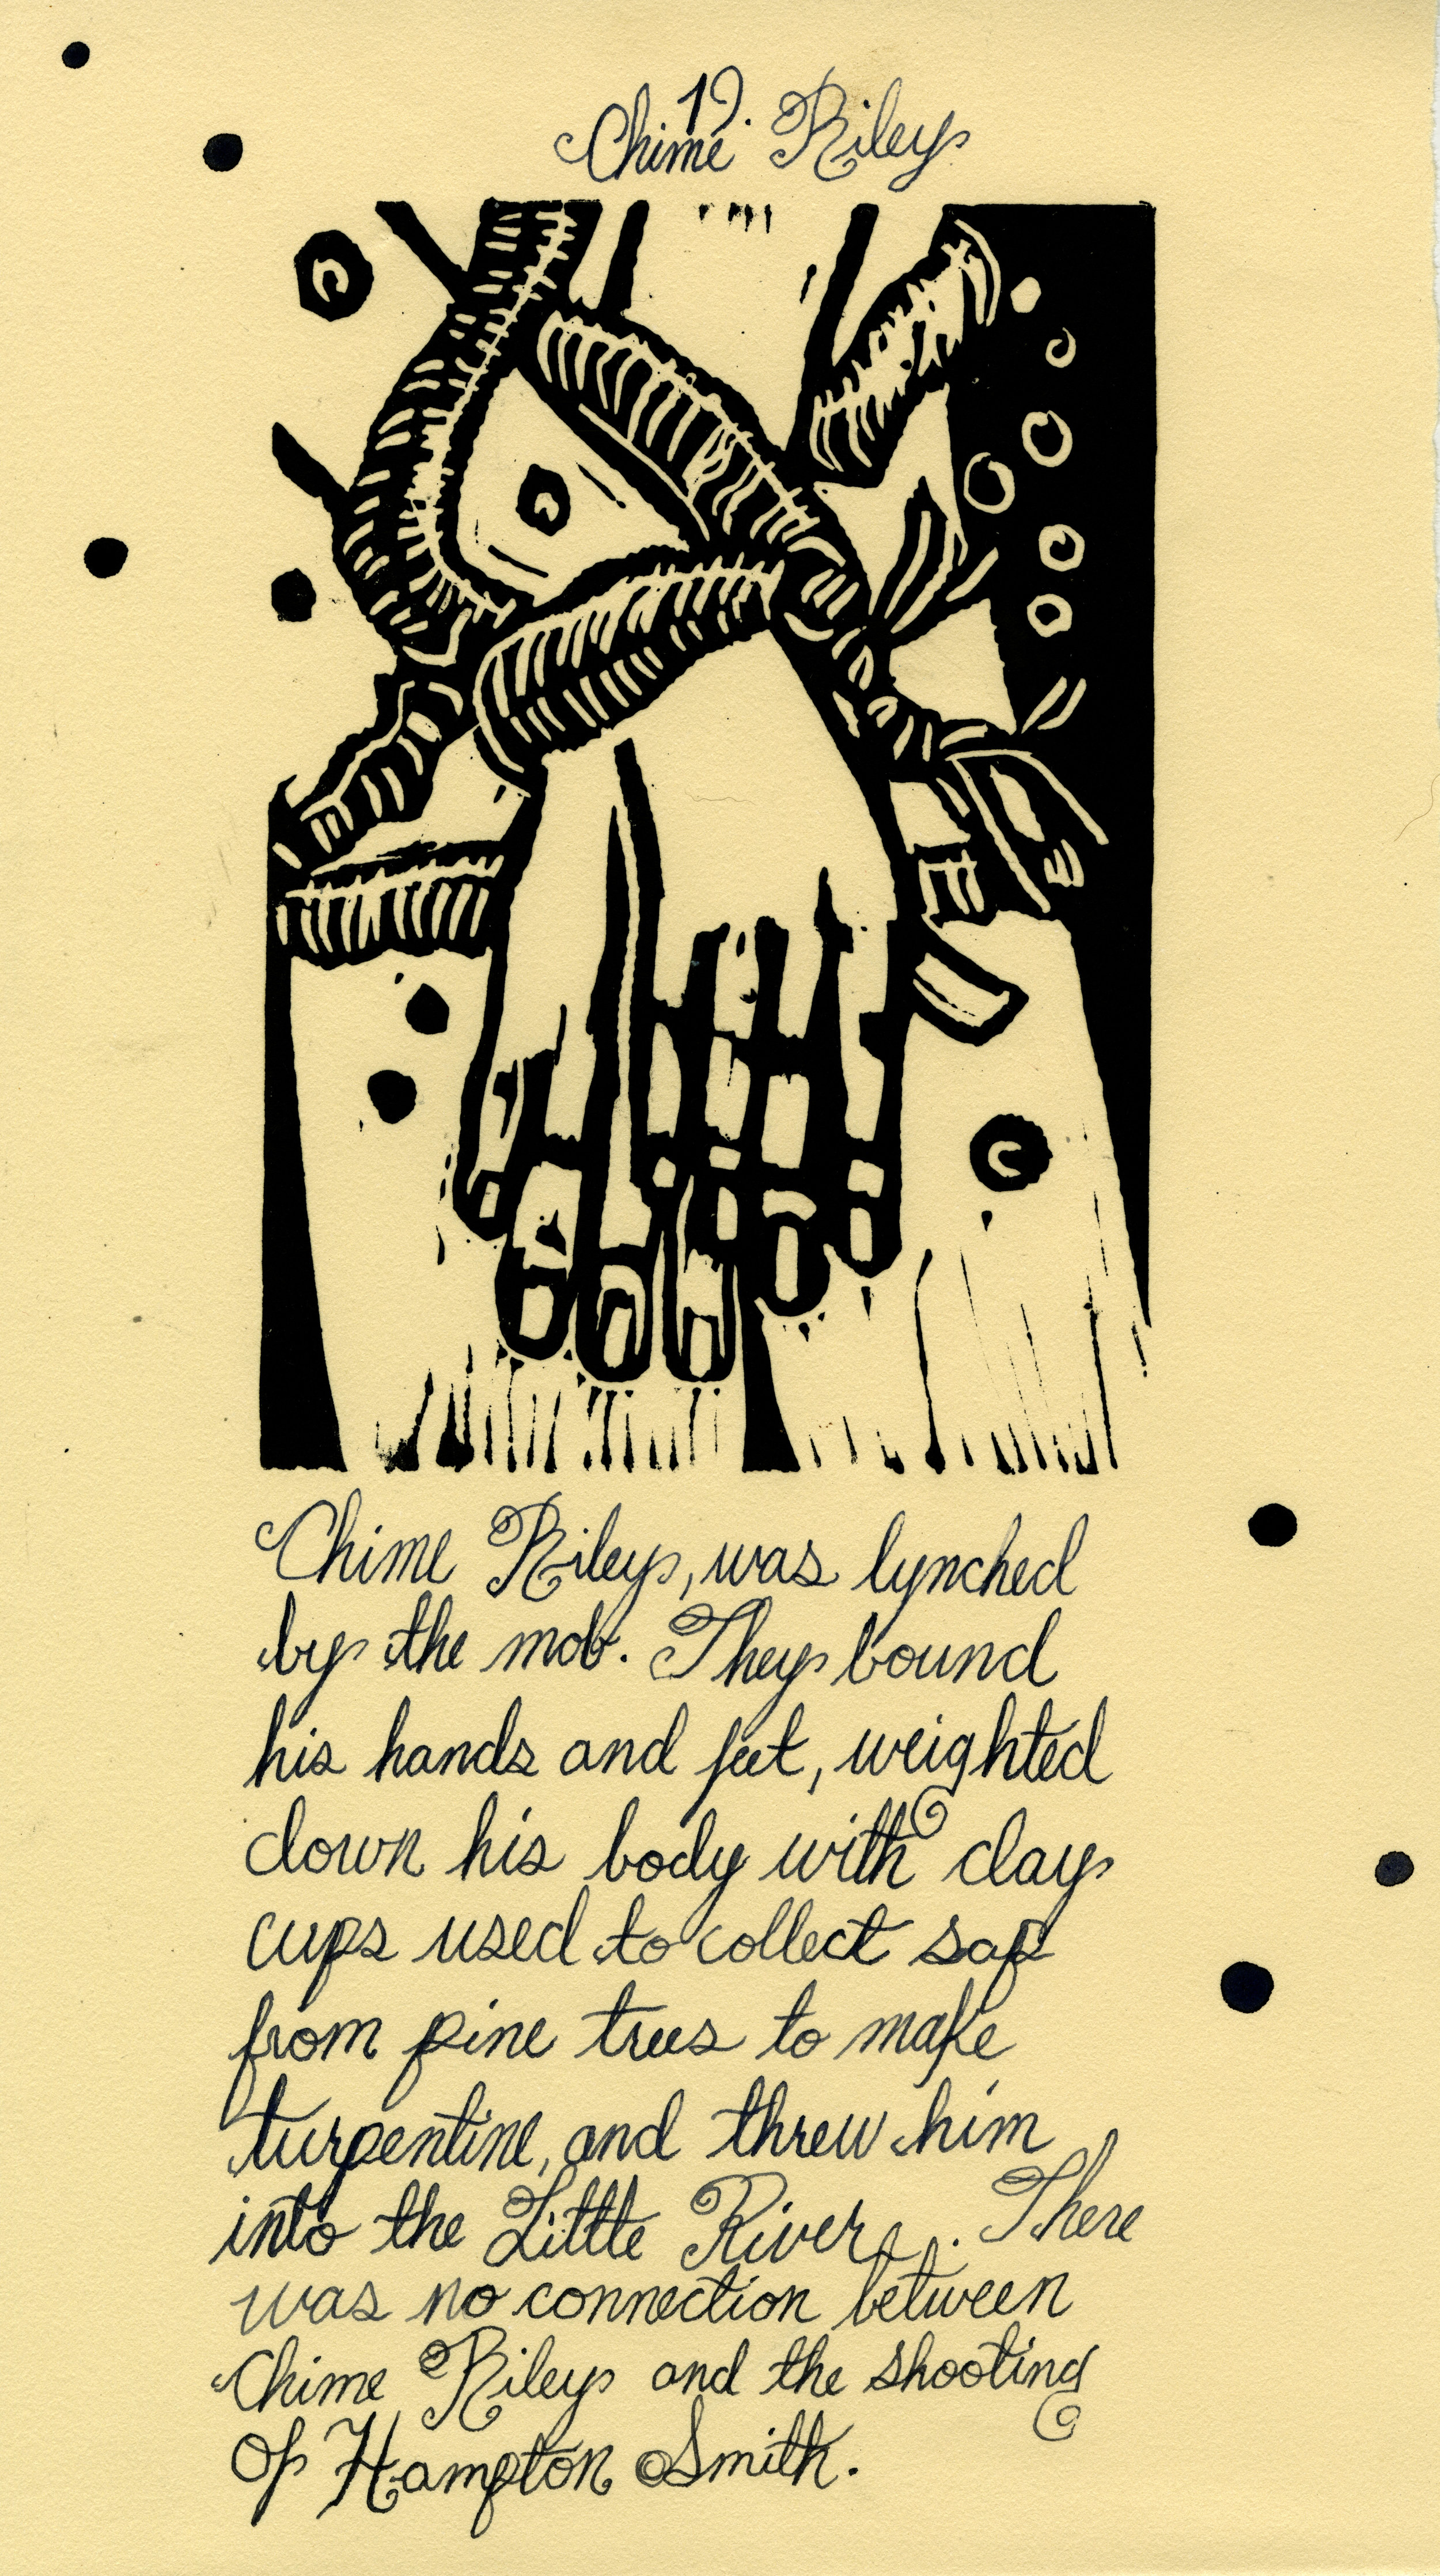 19.
Chime Riley
Chime Riley, was lynched
by the mob. They bound
his hands and feet, weighted
down his body with clay
cups used to collect sap
from pine trees to make
turpentine, and threw him
into the Little River. There
was no connection between
Chime Riley and the shooting
Of Hampton Smith.